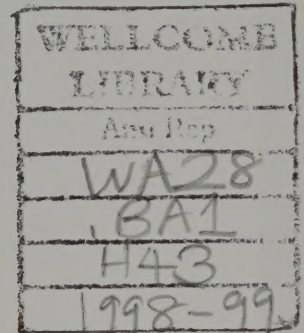 WELLCOME
LIBRARY
Ann Rep
WA28
.BA1
H43
1998-99